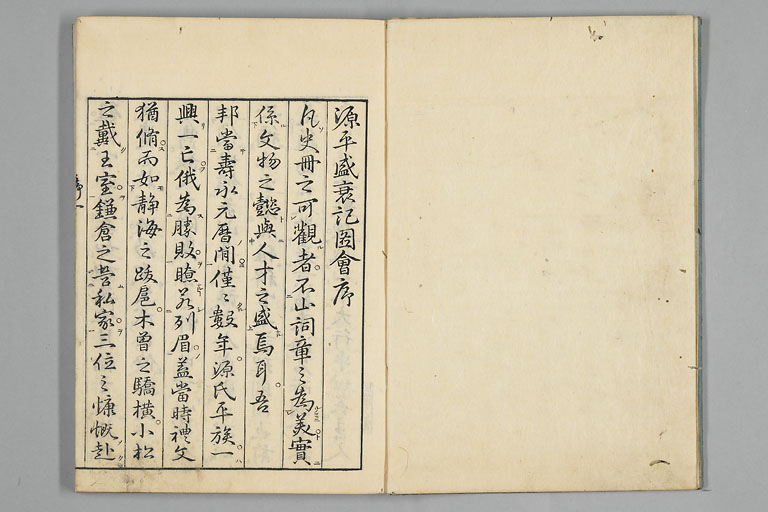 源平盛衰記圖會序
凡史冊之可觀者不㞢詞章之為美實
係文物之懿與人才之盛焉耳吾
邦當壽永元曆間僅々數年源氏平族一
興一亡俄為勝敗瞭若列眉蓋當時禮文
猶脩而如靜海之跋扈木曾之驕横小松
之戴王室鎌倉之營私家三位之慷慨赴
序一